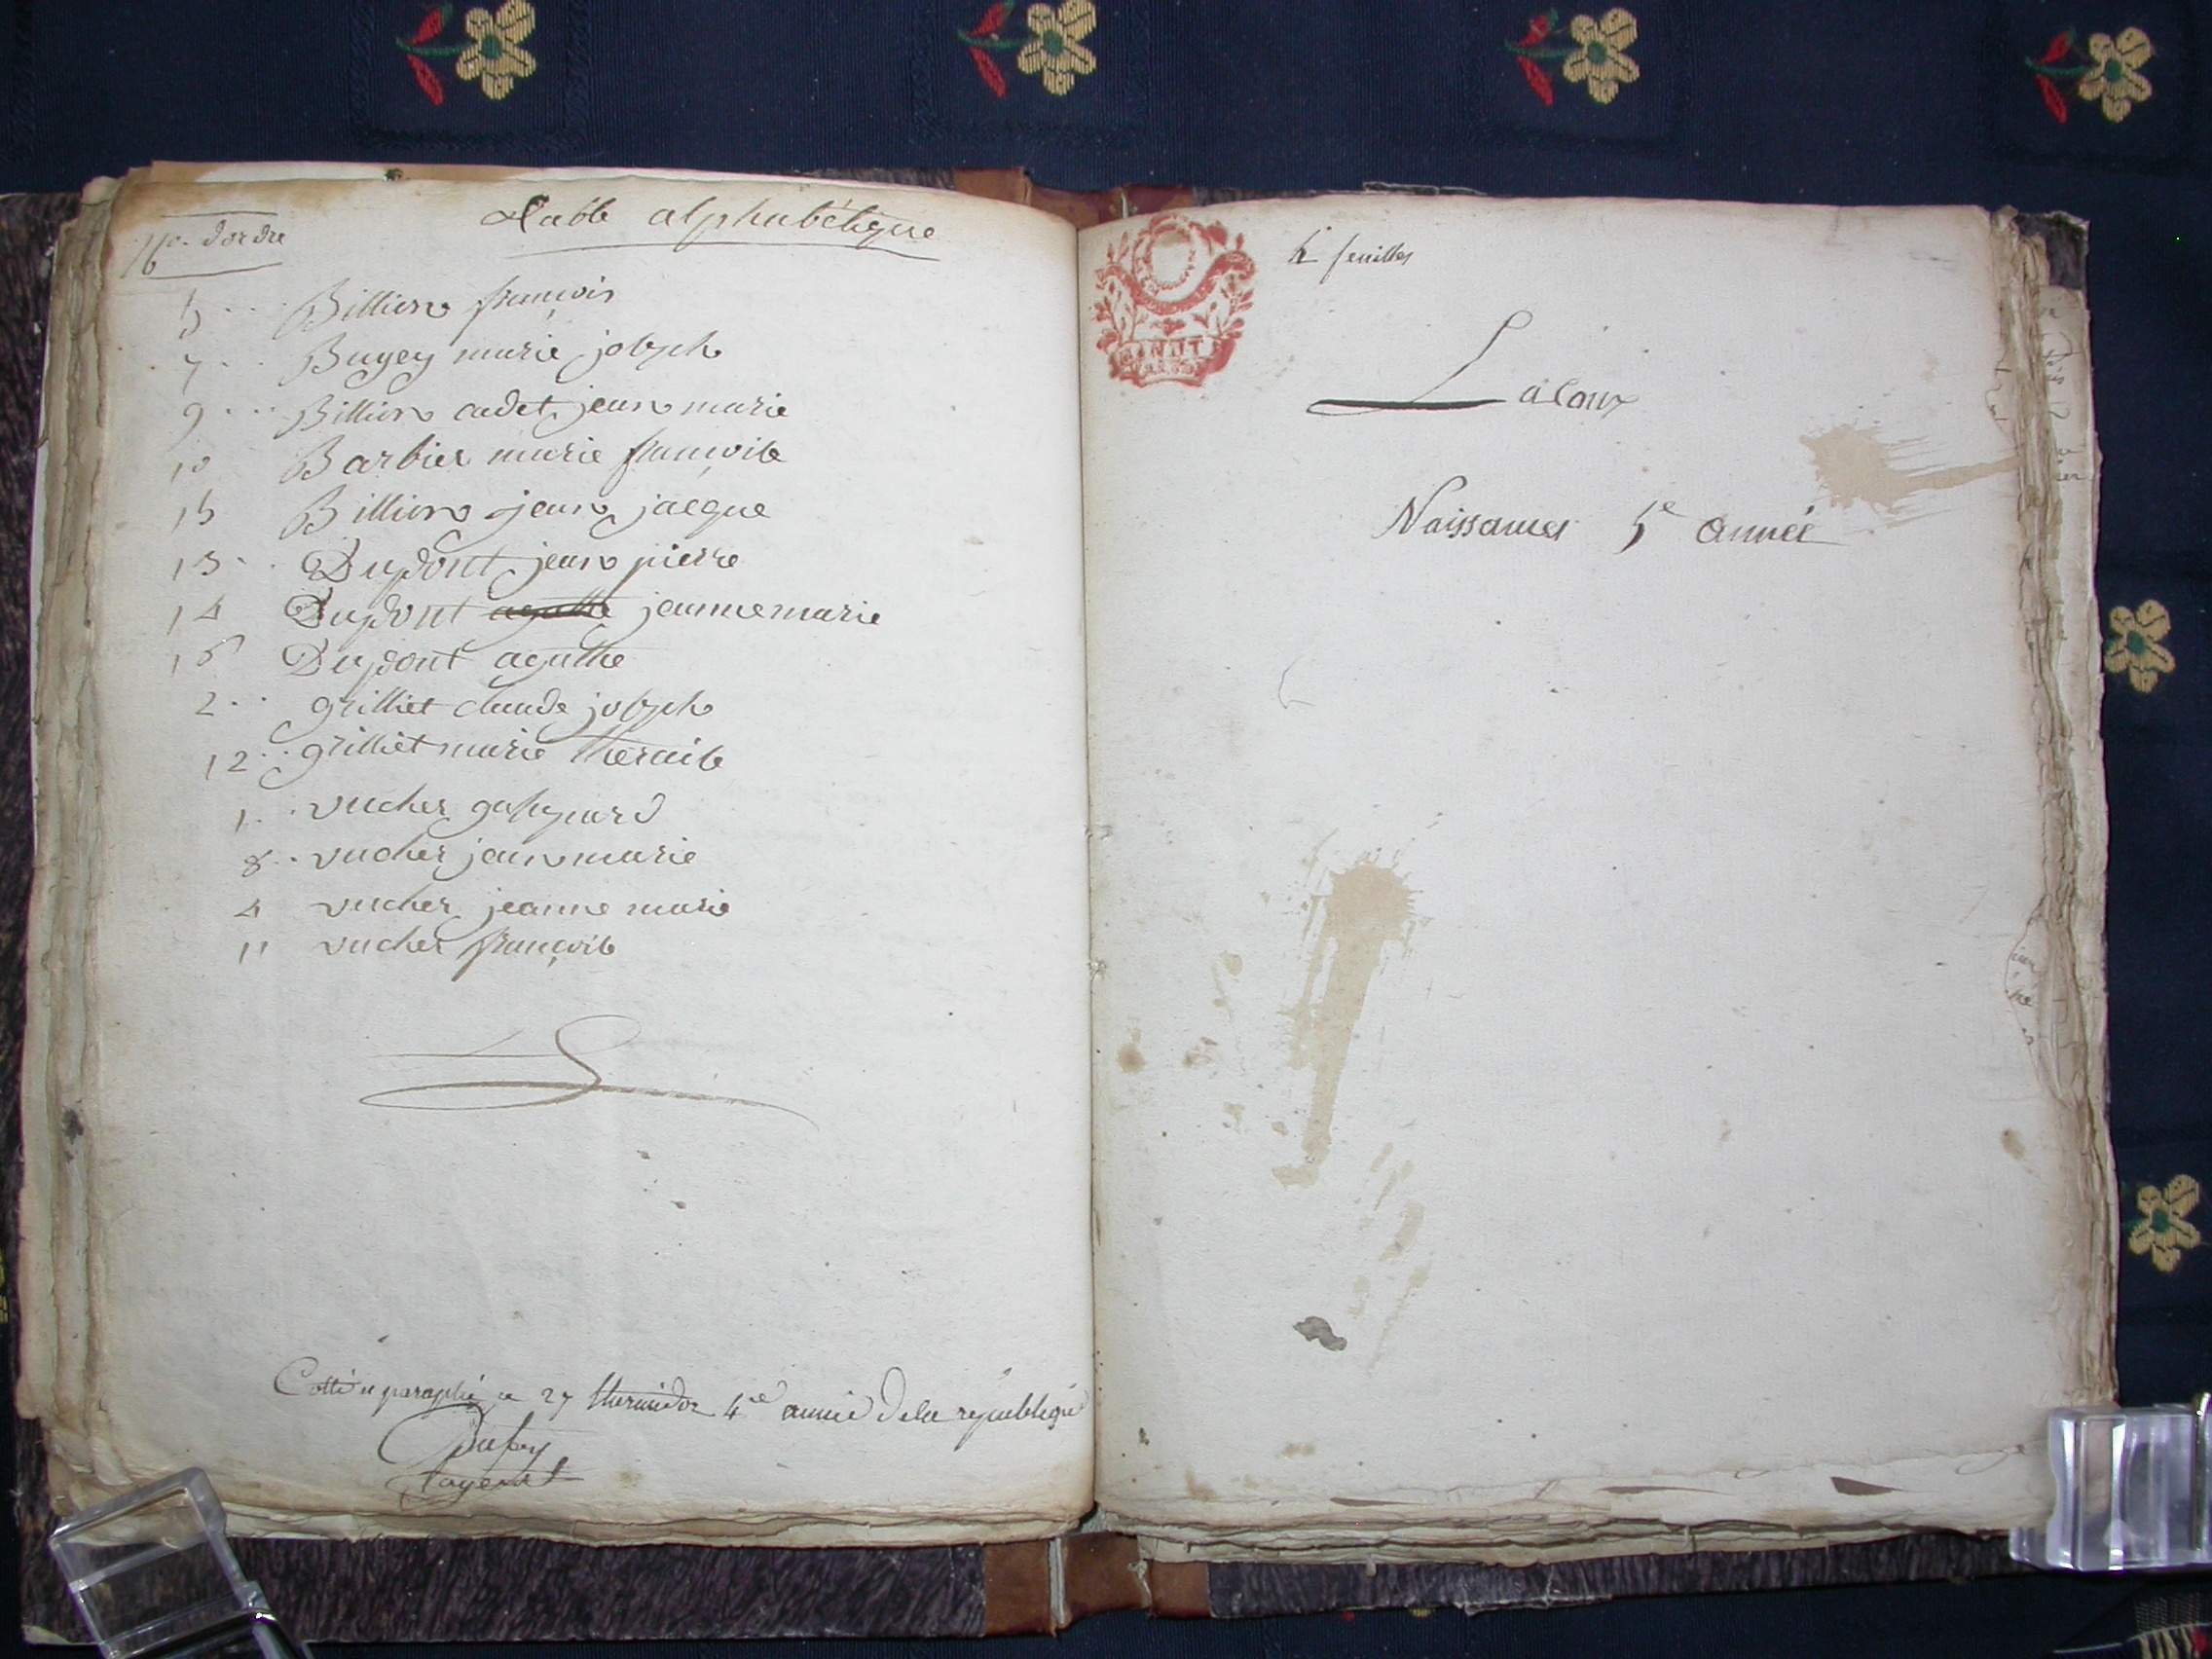 No. dordre
Table alphabétique
5 Billion françois
7 Bugey marie joseph
9 Billion cadet jean marie
10 Barbier marie françoise
15 Billion jean jacque
13 Dupont jean pierre
14 Dupont agathe jeanne marie
16 Dupont agathe
2 grilliet claude joseph
12 grilliet marie theraise
1 vucher gaspard
8 vucher jean marie
4 vucher jeanne marie
11 vucher françoise
Cotté et paraphé ce 27 thermidor 4me année de la république
feuilles
Lalaux
Naissances 5e année